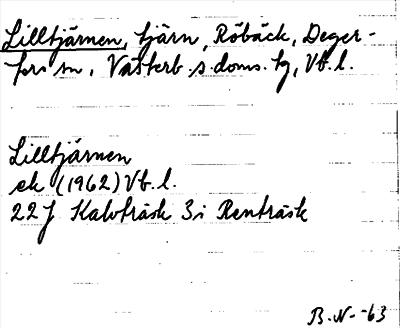 Lilltjärnen, tjärn, Röbäck, Deger-
fors sn, Västerb. s. doms. tg, Vb. l.
Lilltjärnen
ek (1962) Vb. l.
22 J Kalvträsk 3i Renträsk
B. N-63